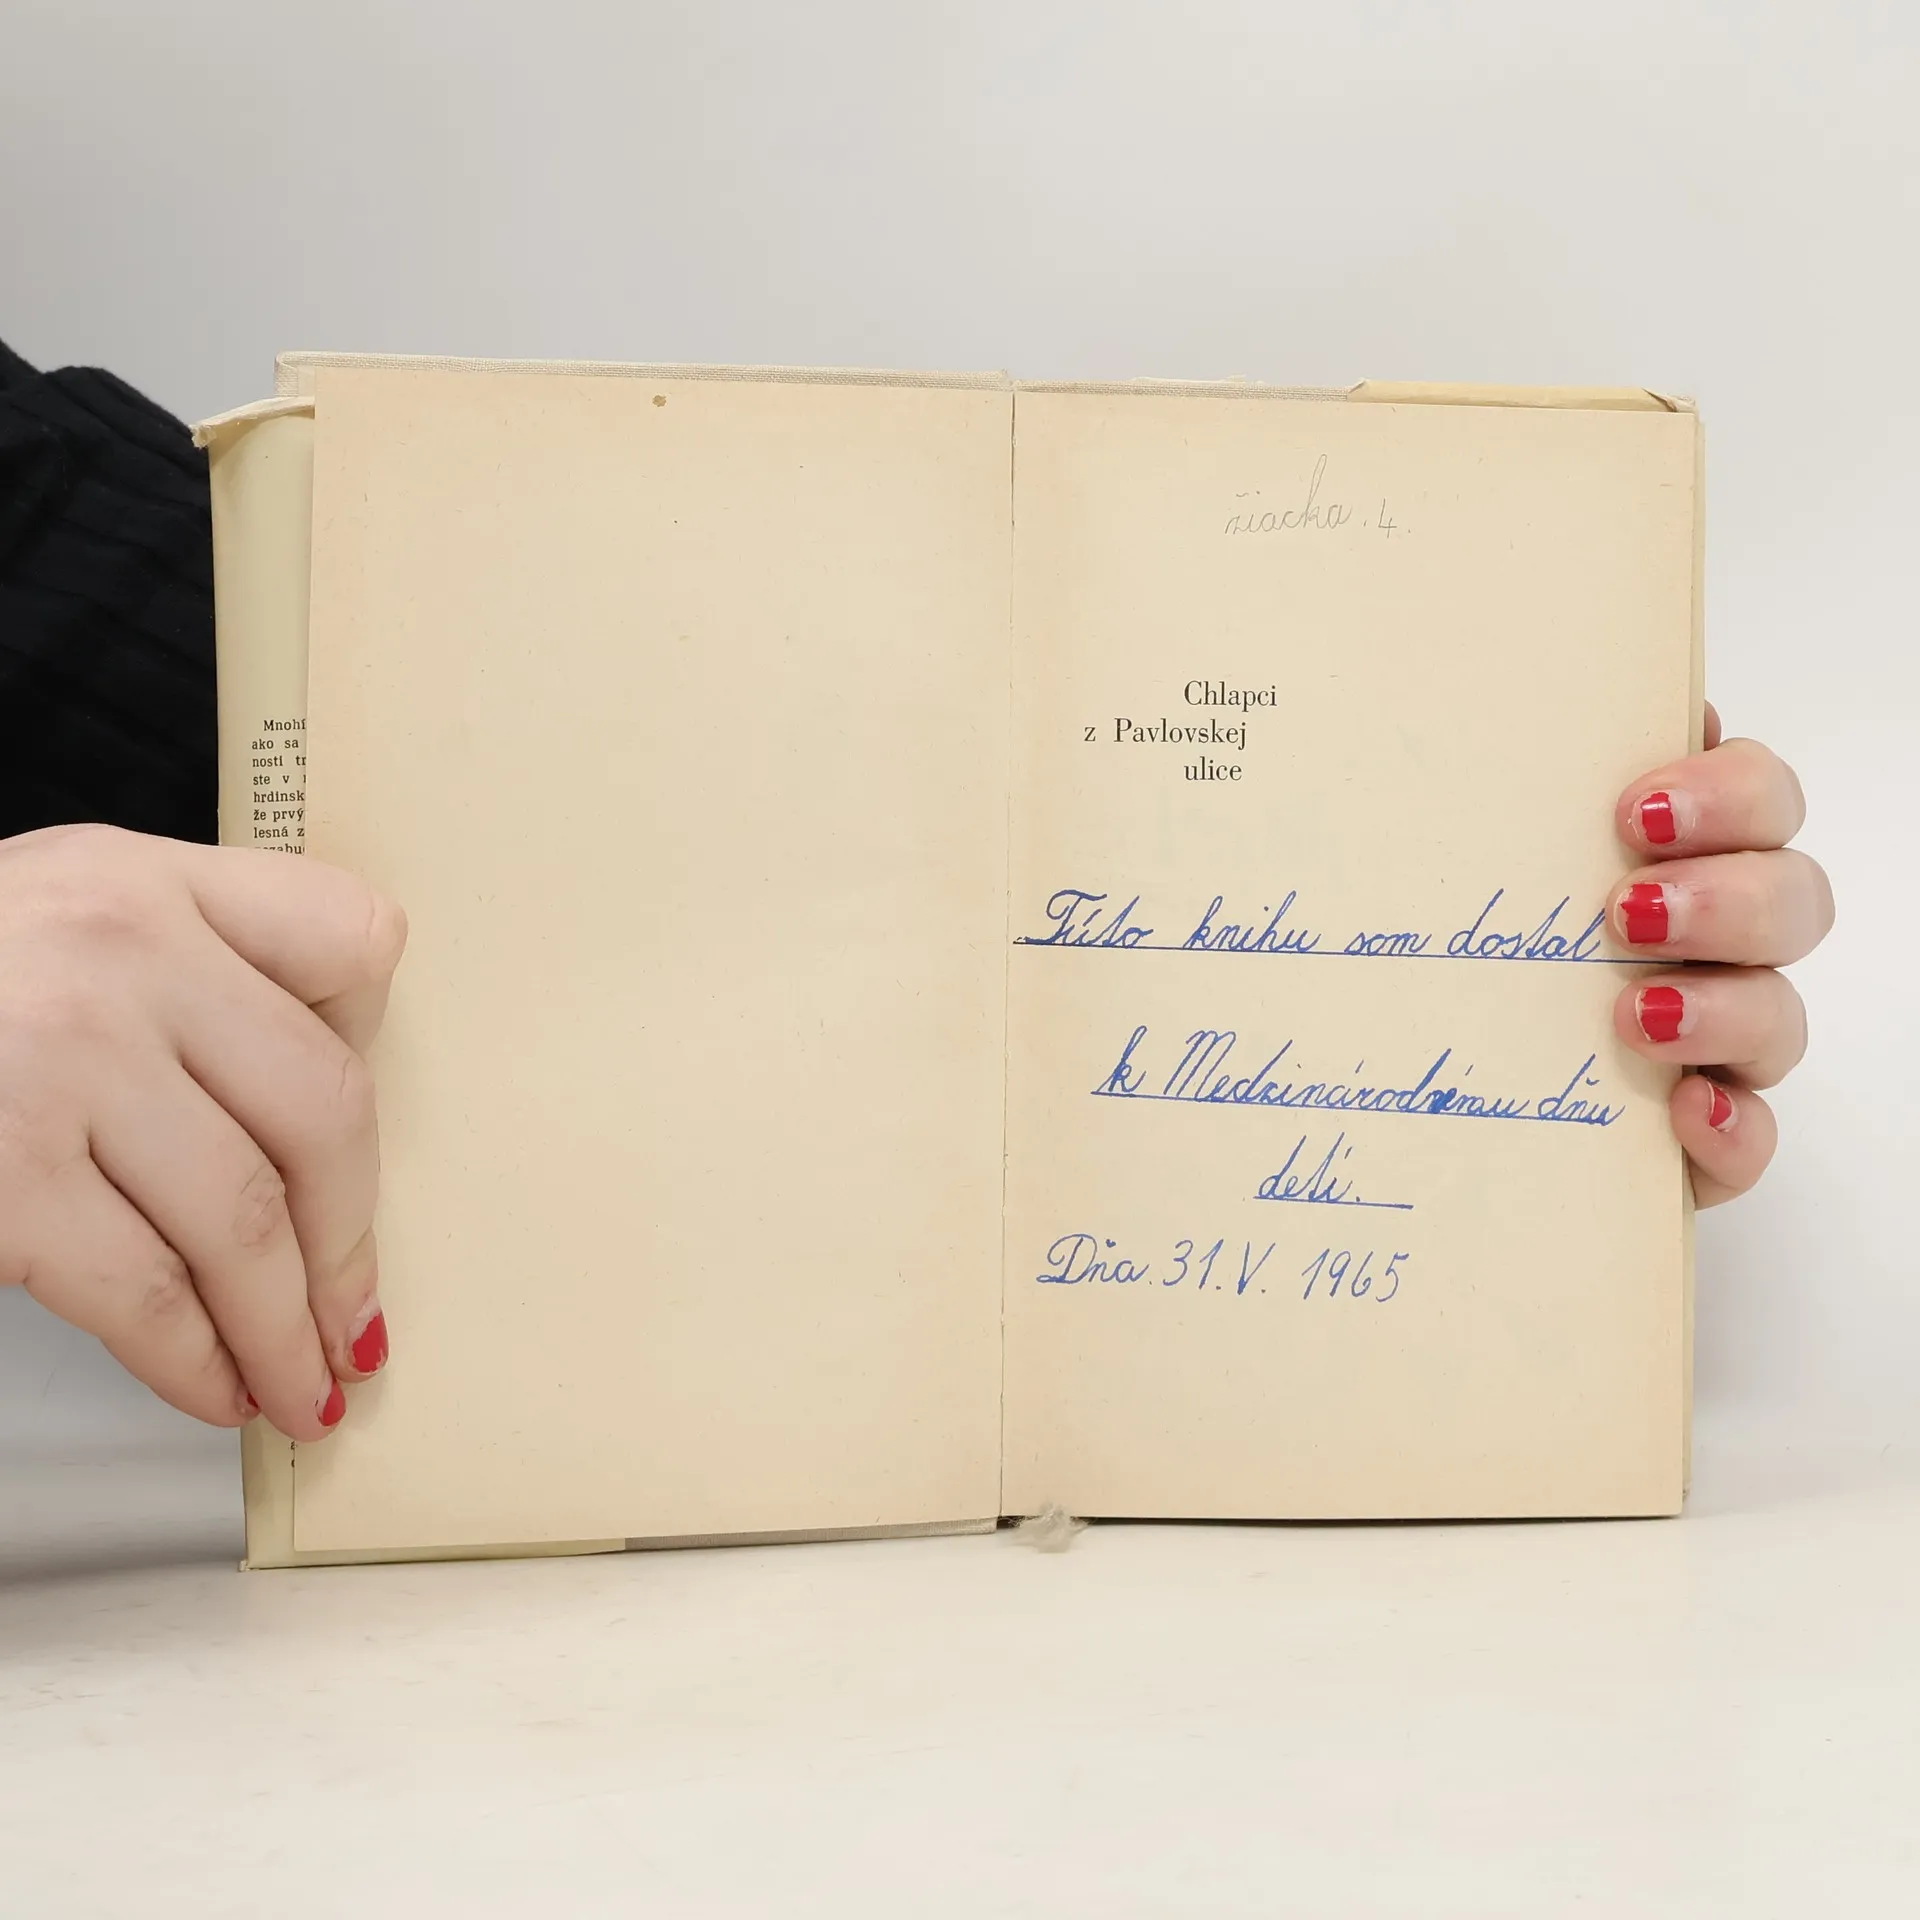 Mnohí
ako sa
nosti
ste v
hrdinsk
že prvý
lesná z
žiacka. 4.
Chlapci
z Pavlovskej
ulice
Túto knihu som dostal
k Medzinárodnému dňu
detí.
Dňa. 31. V. 1965